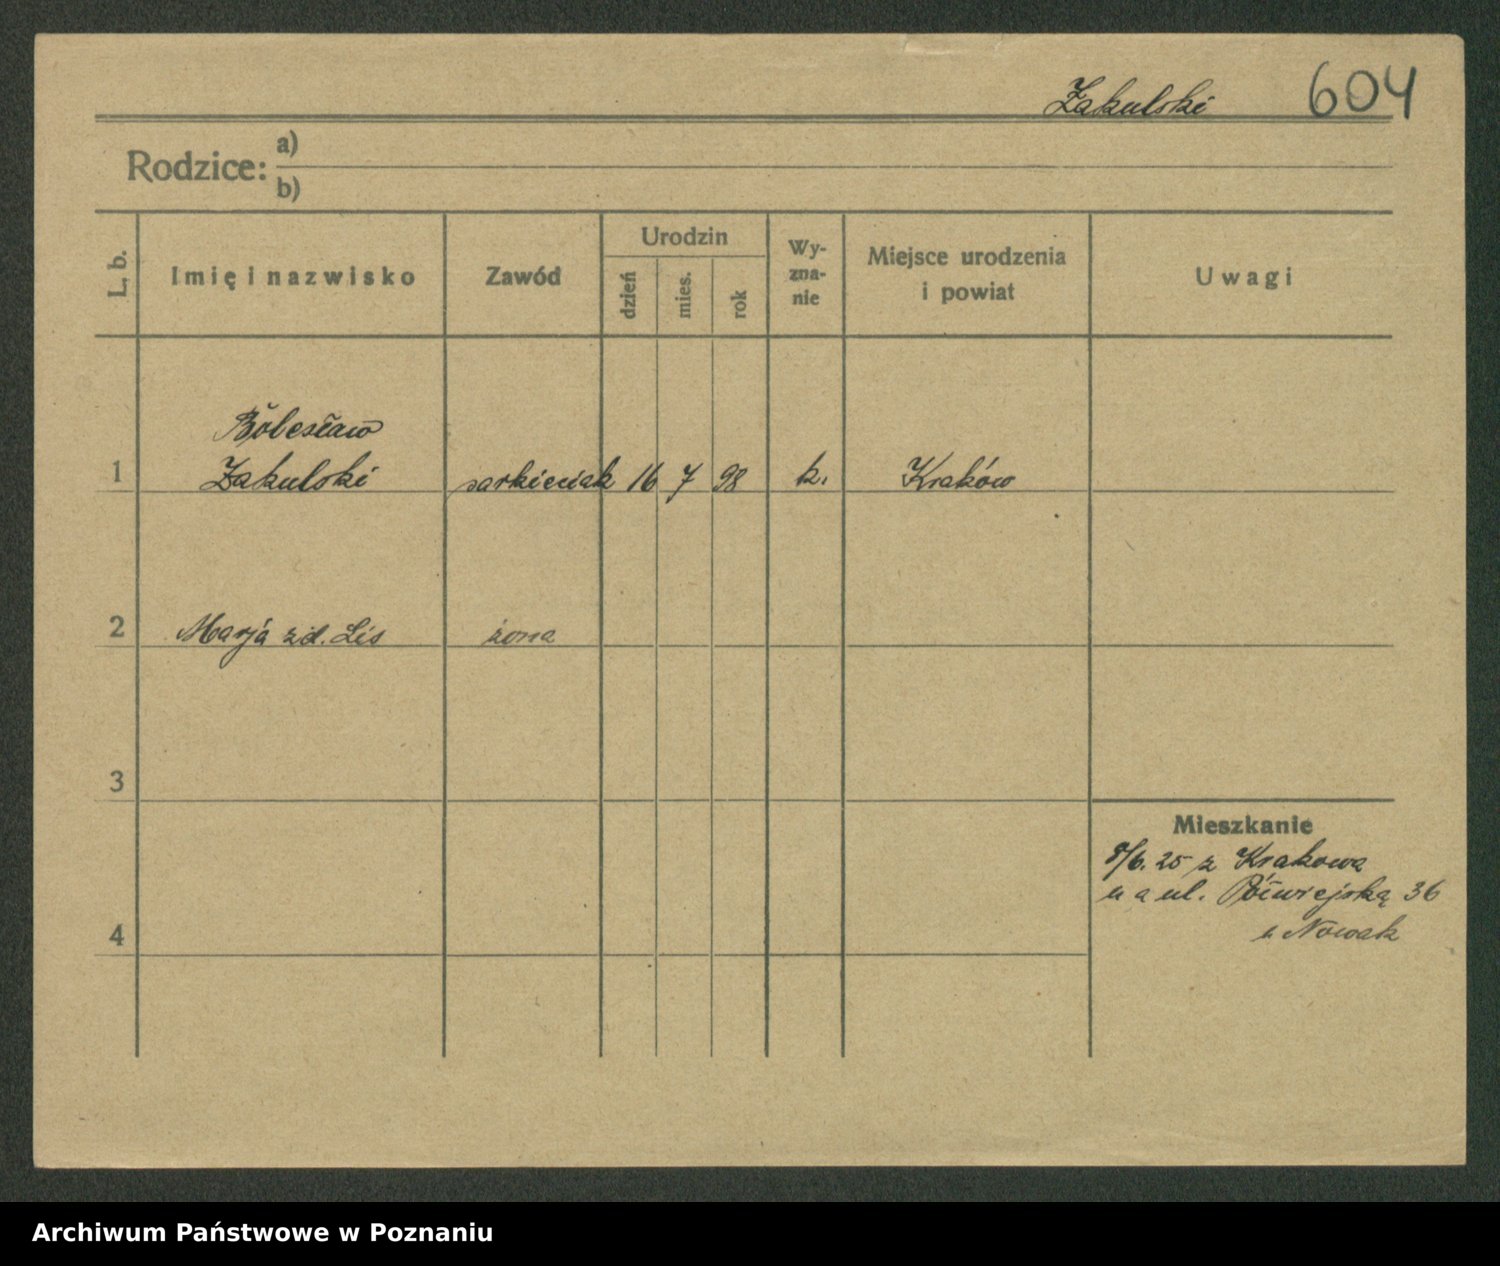 Żakulski 604
Rodzice: a)
b)
L. b.
Imię i nazwisko
Zawód
Urodzin
dzień
mies.
rok
Wy-
zna-
nie
Miejsce urodzenia
i powiat
Uwagi
Bolesław
1 Żakulski 16 7 98 k. Kraków
2 Marja zd. Lis żona
3
Mieszkanie
8/6. 25 z Krakowa
na ul. Półwiejską 36
u Nowak
4
Archiwum Państwowe w Poznaniu